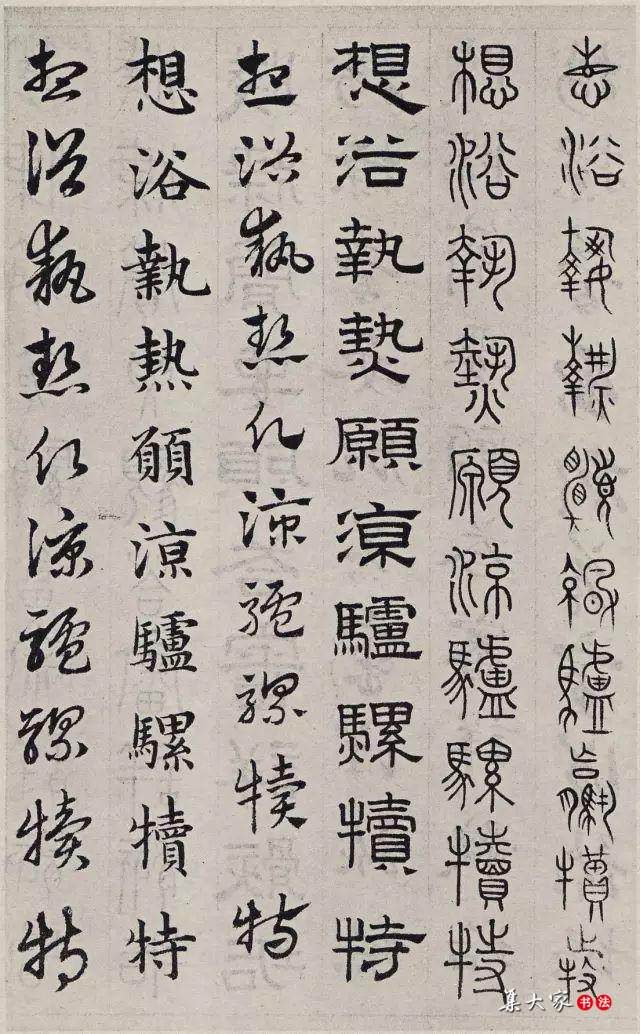 想浴執熱願涼驢騾犢特
想浴執熱願涼驢騾犢特
想浴執熱願涼驢騾犢特
想浴執熱願涼驢騾犢特
想浴執熱願涼驢騾犢特
想浴執熱願涼驢騾犢特
集大家书法